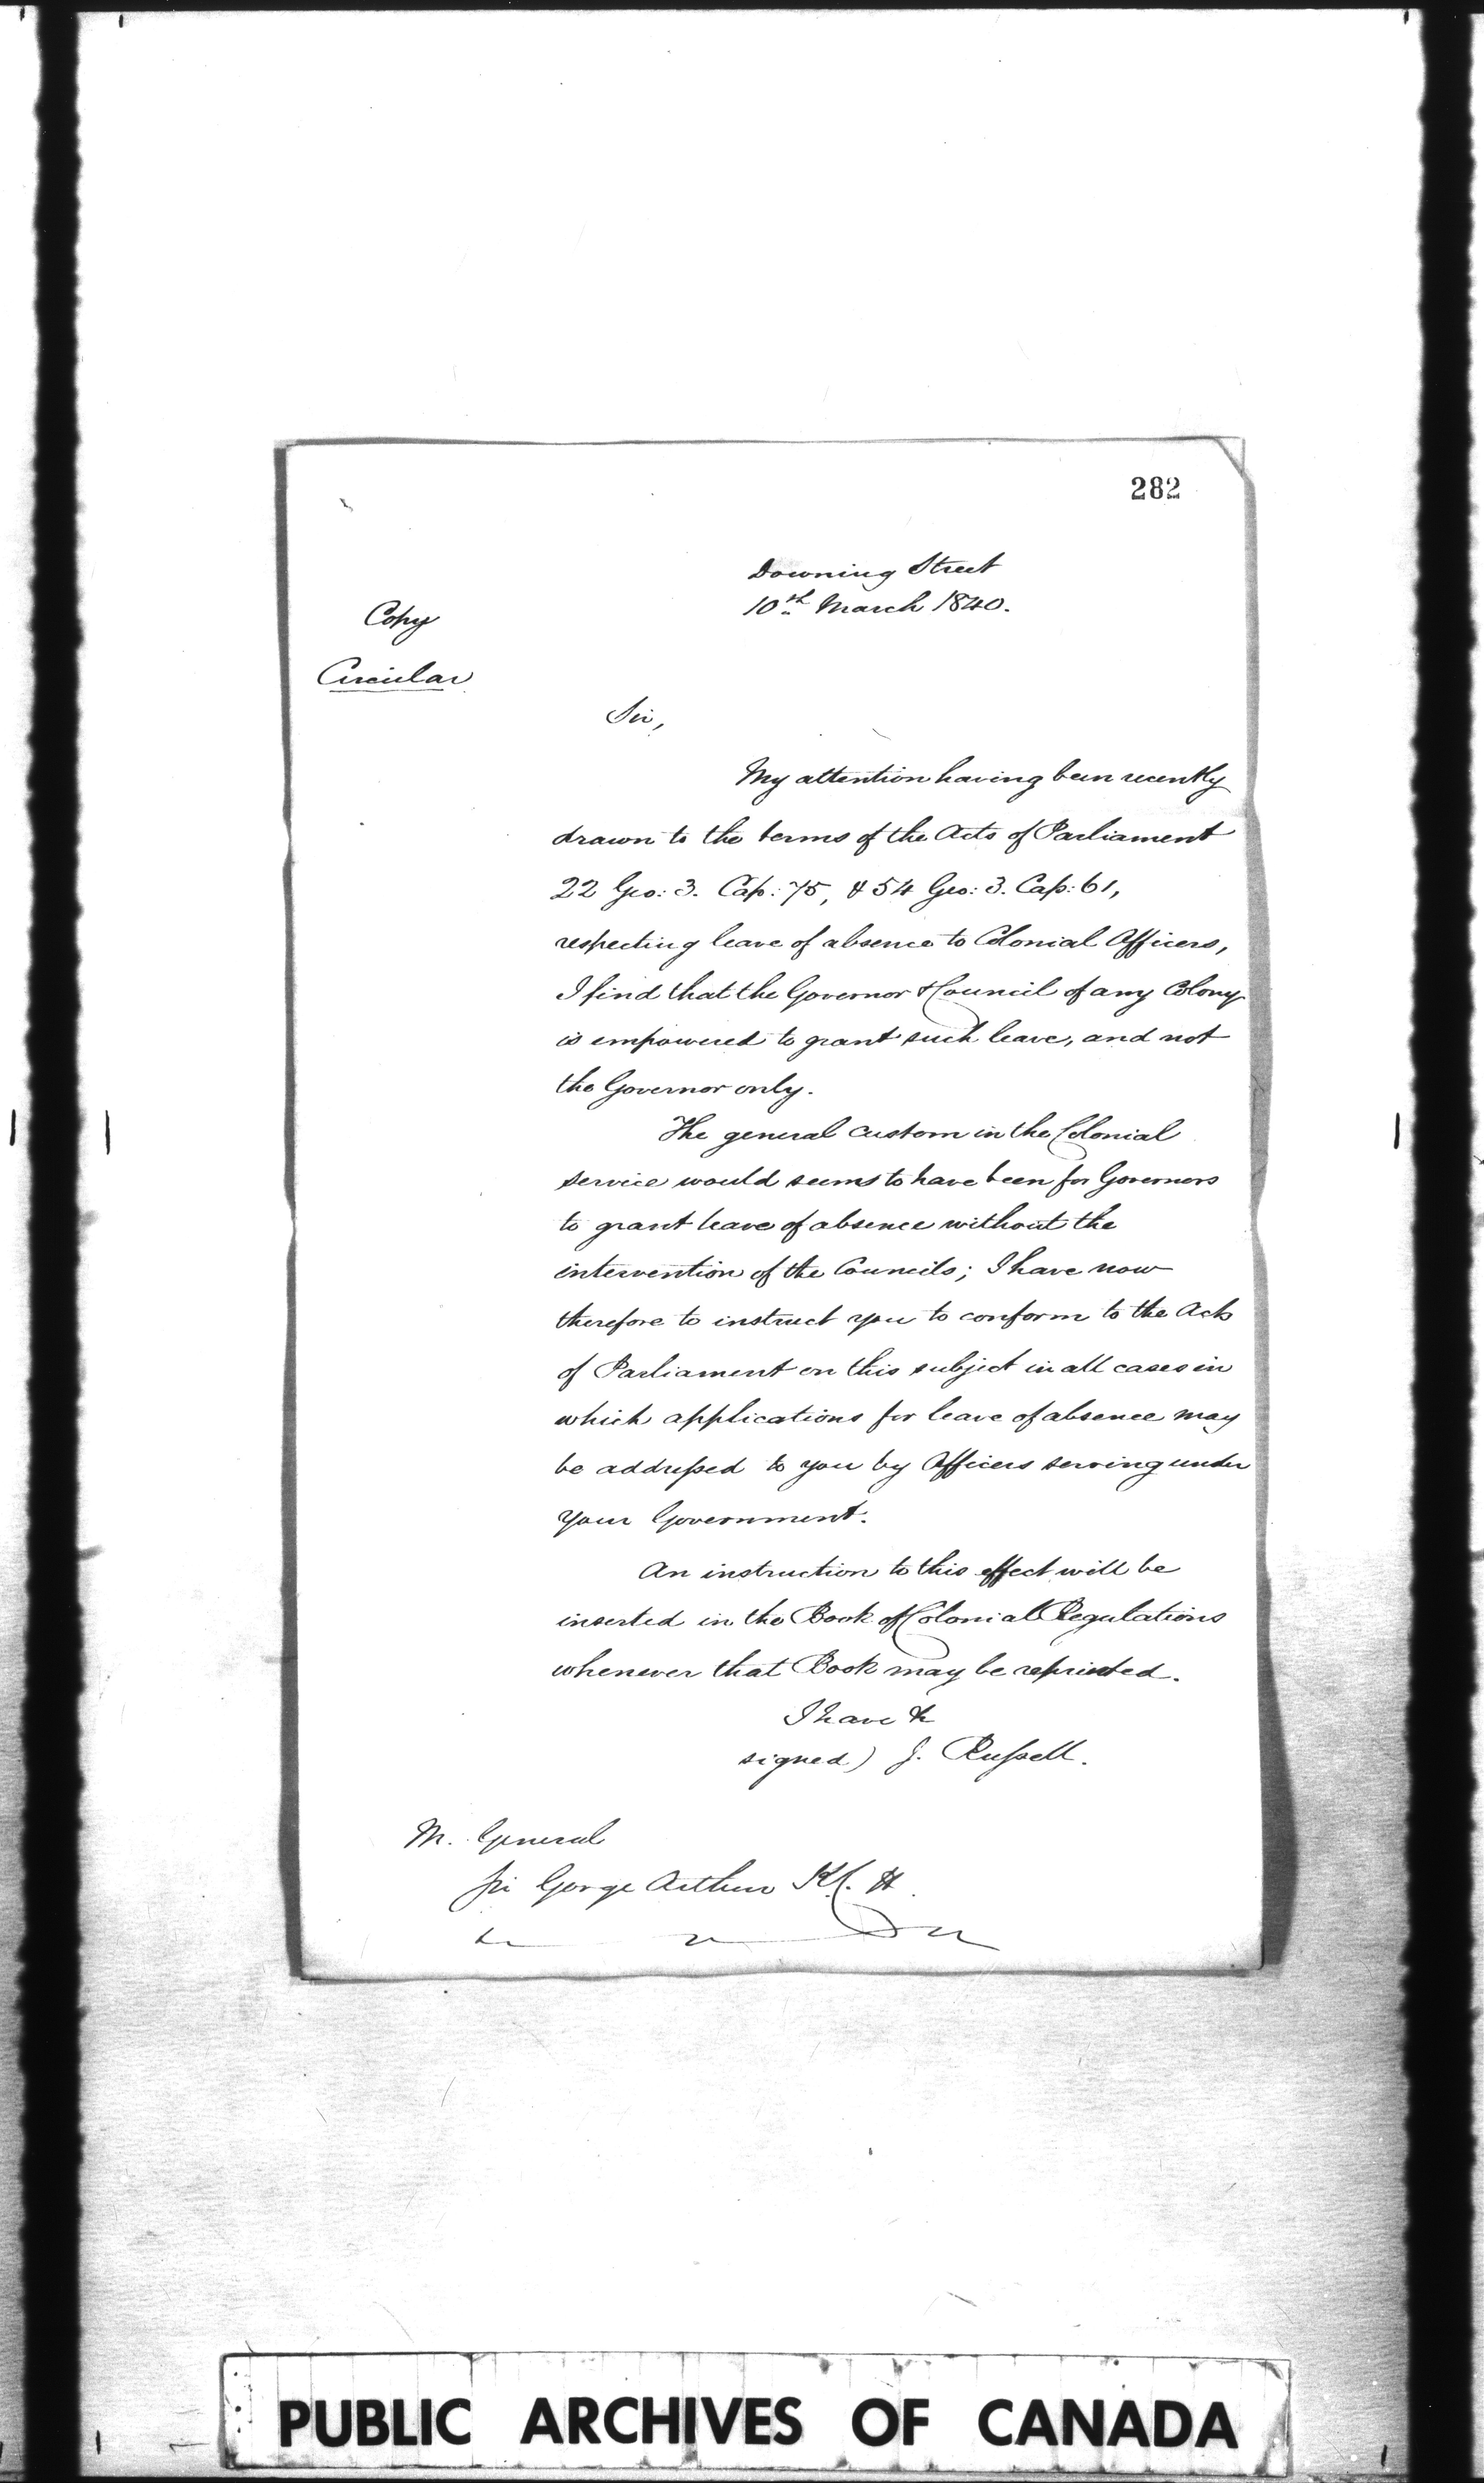 282
Downing Street
10th March 1840.
Copy
Circular
Sir,
My attention having been recently
drawn to the terms of the Acts of Parliament
22 Geo: 3. Cap: 75, & 54 Geo: 3. Cap: 61,
respecting leave of absence to Colonial Officers,
I find that the Governor & Council of any Colony
is empowered to grant such leave, and not
the Governor only.
The general custom in the Colonial
service would seems to have been for Governors
to grant leave of absence without the
intervention of the Councils; I have now
therefore to instruct you to conform to the Acts
of Parliament on this subject in all cases in
which applications for leave of absence may
be addressed to you by Officers serving under
your Government.
An instruction to this effect will be
inserted in the Book of Colonial Regulations
whenever that Book may be reprinted.
I have &c
signed) J. Russell.
M. General
Sir George Arthur K.C.H.
PUBLIC ARCHIVES OF CANADA